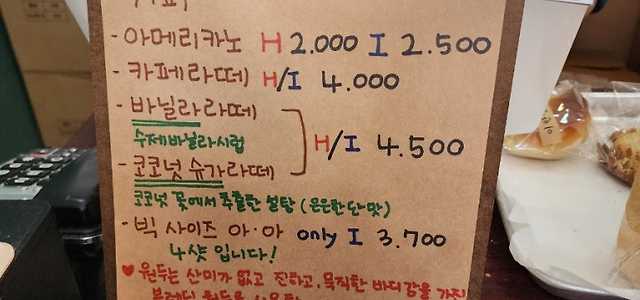 - 아메리카노 H 2.000 I 2.500
- 카페라떼 H/I 4.000
- 바닐라라떼
수제바닐라시럽
H/I 4.500
- 코코넛 슈가라떼
코코넛 꽃에서 추출한 설탕 (은은한단맛)
- 빅 사이즈 아·아 only I 3.700
4샷 입니다!
♥ 원두는 산미가 없고 진하고, 묵직한 바디감을 가진